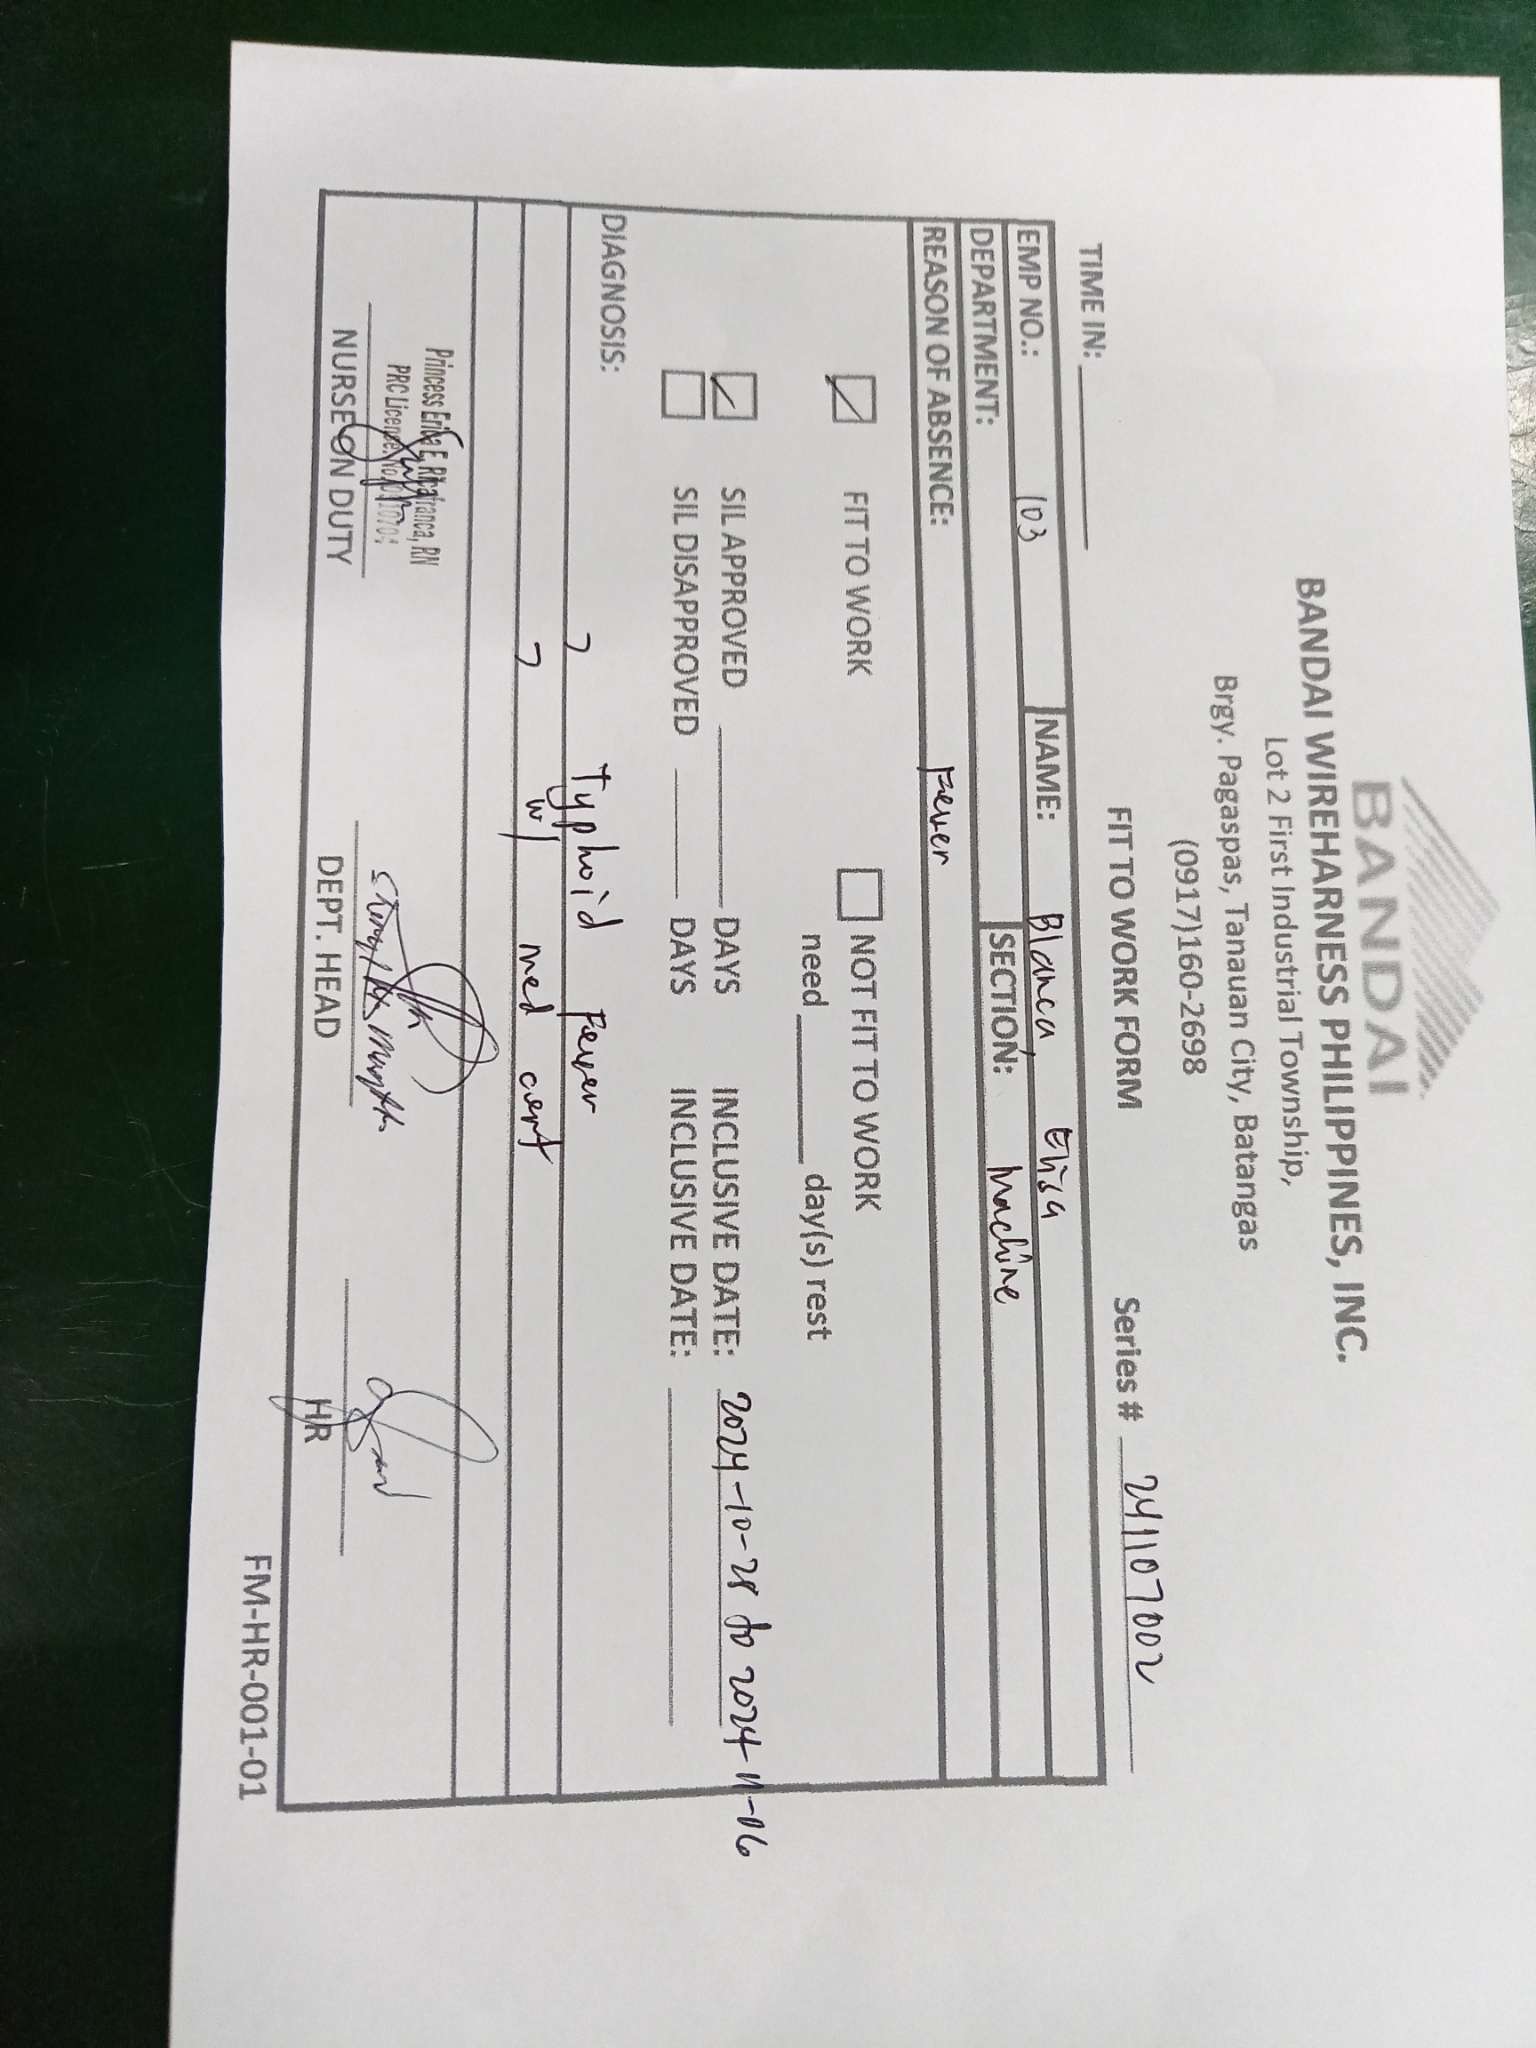 BANDAI
BANDAI WIREHARNESS PHILIPPINES, INC.
Lot 2 First Industrial Township,
Brgy. Pagaspas, Tanauan City, Batangas
(0917)160-2698
FIT TO WORK FORM
Series # 241107002
TIME IN:
EMP NO.: 103 NAME: Blanca, Elisa
DEPARTMENT: SECTION: Machine
REASON OF ABSENCE: Fever
FIT TO WORK NOT FIT TO WORK
need ____ day(s) rest
SIL APPROVED ____ DAYS INCLUSIVE DATE: 2024-10-28 to 2024-11-06
SIL DISAPPROVED ____ DAYS INCLUSIVE DATE:
DIAGNOSIS:
Typhoid Fever
w/ med cert
Princess Erika E. RN
PRC License No.
NURSE ON DUTY DEPT. HEAD HR
FM-HR-001-01